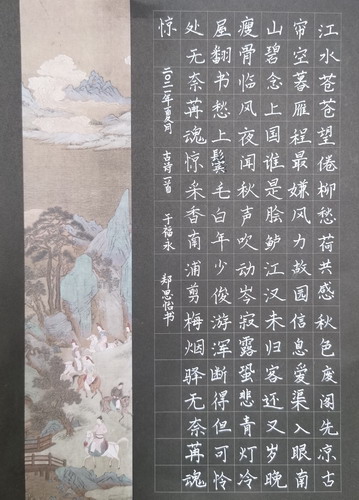 江水苍苍望倦柳愁荷共感秋色废阁先凉古
帘空暮雁程最嫌风力故国信息爱渠入眼南
山碧念上国谁是脍鲈江汉未归客还又岁晚
瘦骨临风夜闻秋声吹动岑寂露蛩悲青灯冷
屋翻书愁上鬓毛白年少俊游浑断得但可怜
处无奈苒魂惊采香南浦剪梅烟驿无奈苒魂
惊
二〇二一年夏月 古诗一首 于福永 郑思怡书